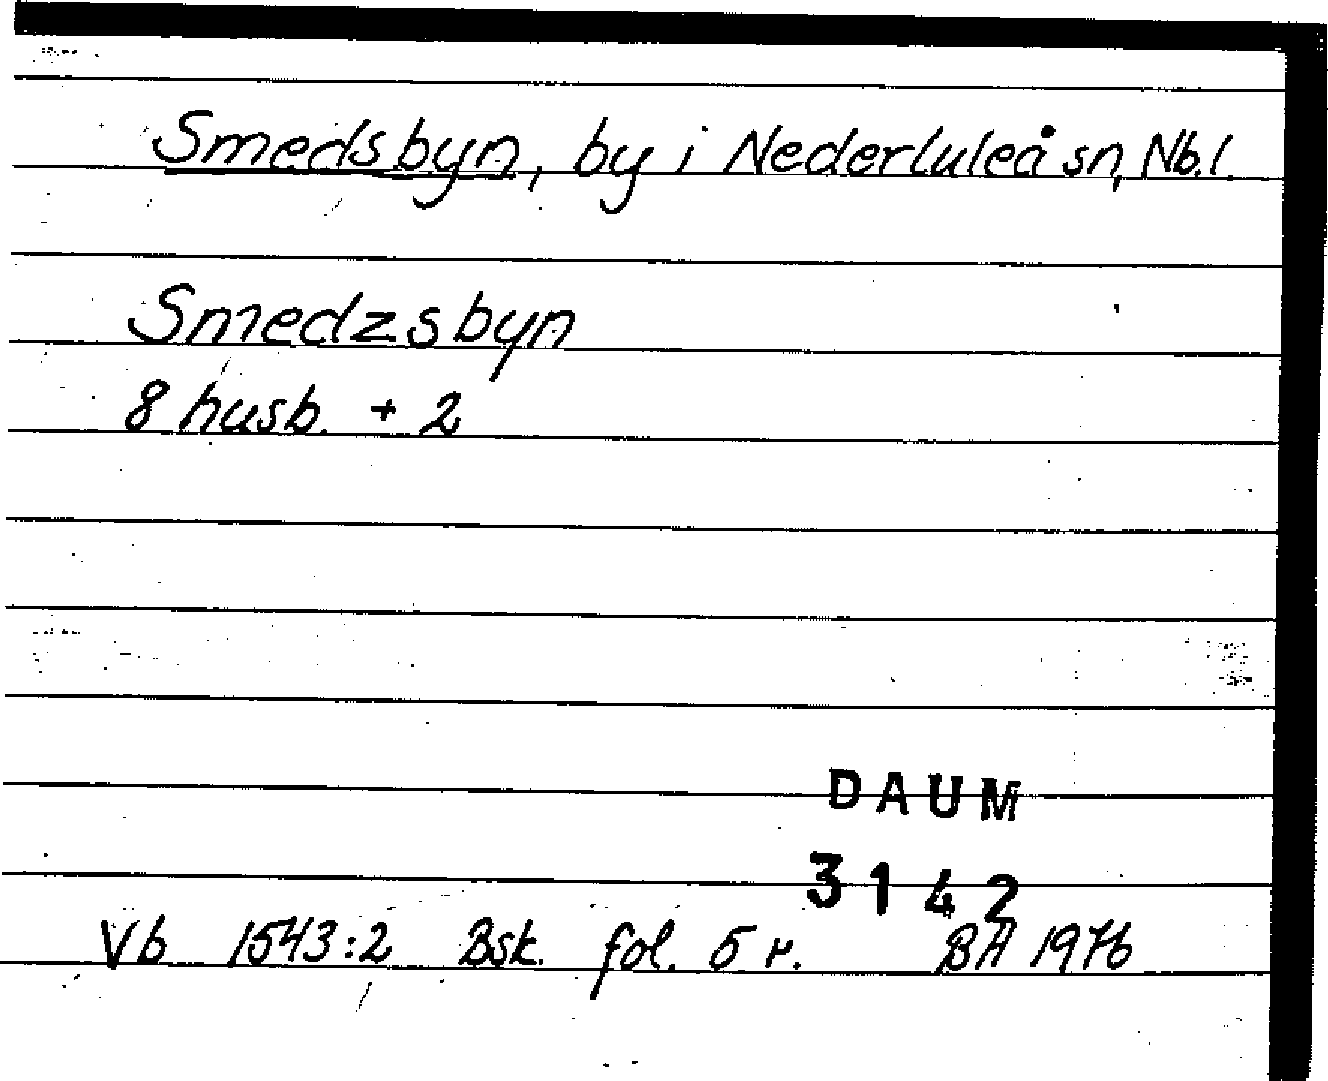 Smedsbyn, by i Nederluleå sn, Nb.l.
Smedzsbyn
8 husb. + 2
DAUM
3142
Vb 1543:2 Bsk. fol. 5 r. BA 1976